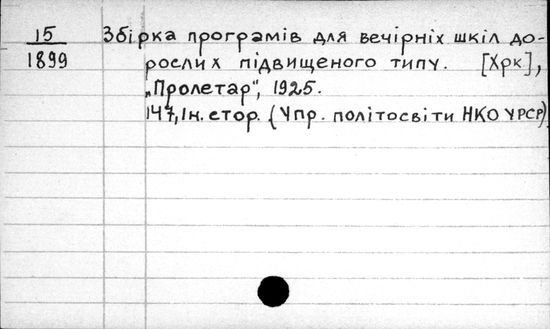 15 Збірка програмів для вечірніх шкіл до-
1899 рослих підвищеного типу. [Хрк],
„Пролетар", 1925.
147, Ін. стор. (Упр. політосвіти НКО УРСР)